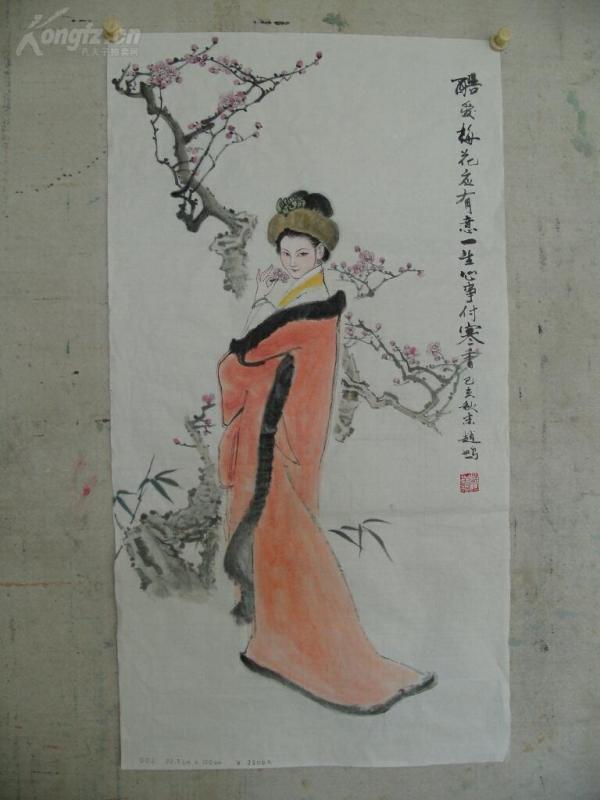 Kongfz.cn
孔夫子拍卖网
酷爱梅花应有意一生心事付寒香己亥秋末赵鸣